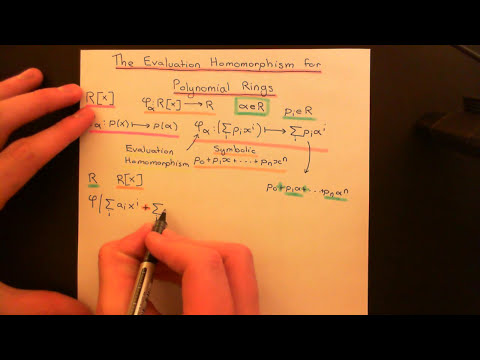 The Evaluation Homomorphism for
Polynomial Rings
R[x] φ_α R[x] → R α∈R p_i∈R
α : p(x) ↦ p(α) φ_α : (Σ_i p_i x^i) ↦ Σ_i p_i α^i
Evaluation Homomorphism
Symbolic
p_0+p_1x+...+p_nx^n
p_0+p_1α+...+p_nα^n
R R[x]
φ(Σ_i a_i x^i + Σ